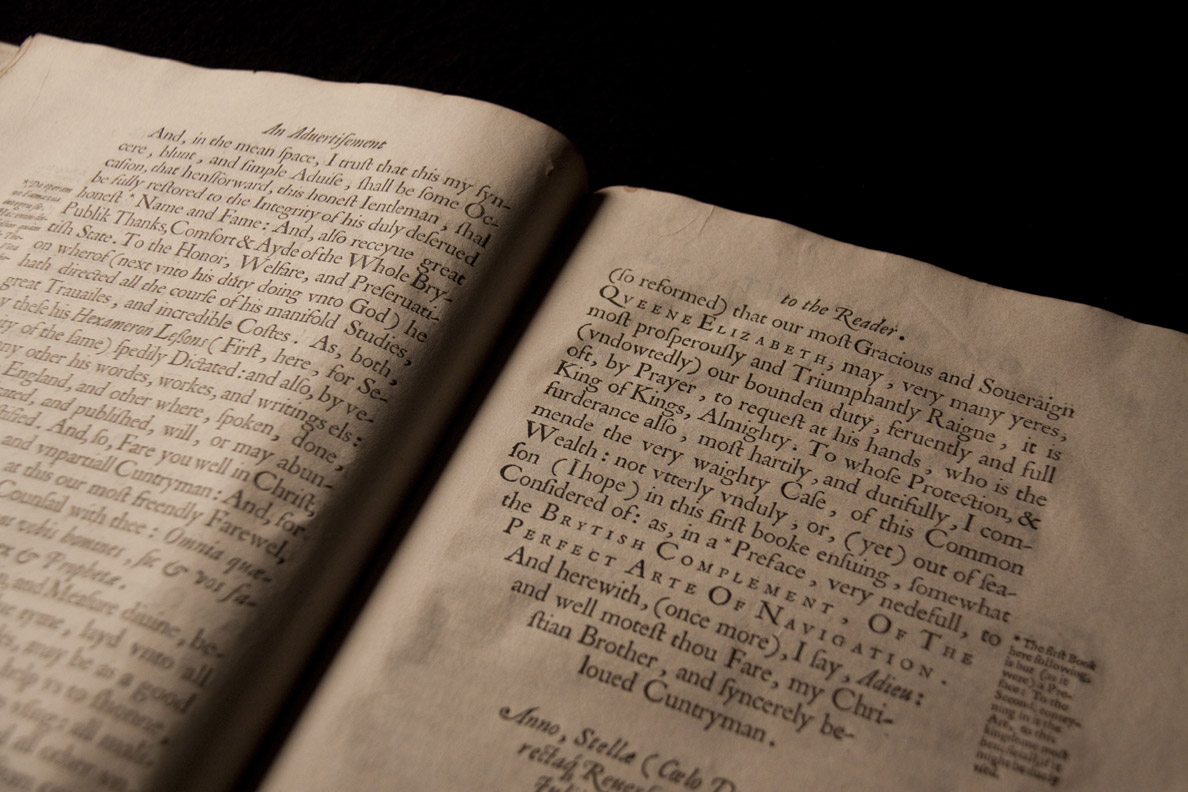 An Aduertiſement
And, in the mean ſpace, I truſt that this my ſyn-
cere, blunt, and ſimple Aduiſe, ſhall be ſome Oc-
caſion, that henſforward, this honeſt Ientleman, ſhal
be fully reſtored to the Integrity of his duly deſerued
honeſt * Name and Fame: And, alſo receyue great
Publik Thanks, Comfort & Ayde of the Whole Bry-
tiſh State. To the Honor, Welfare, and Preſeruati-
on wherof (next vnto his duty doing vnto God) he
hath directed all the courſe of his manifold Studies,
great Trauailes, and incredible Coſtes. As, both,
theſe his Hexameron Leſsons (Firſt, here, for Se-
of the ſame) ſpedily Dictated: and alſo, by ve-
any other his wordes, workes, and writings els:
England, and other where, ſpoken, done,
and publiſhed, will, or may abun-
And, ſo, Fare you well in Chriſt,
and vnpartiall Cuntryman: And, for
at this our moſt freendly Farewel,
Counſail with thee: Omnia quæ-
vobis homines, ſic & vos fa-
& Prophetæ.
and Meaſure diuine, be-
ryme, layd vnto all
may be as a good
help
all
to the Reader.
(ſo reformed) that our moſt Gracious and Soueraign
QVEENE ELIZABETH, may, very many yeres,
moſt proſperouſly and Triumphantly Raigne, it is
(vndowtedly) our bounden duty, feruently and full
oft, by Prayer, to requeſt at his hands, who is the
King of Kings, Almighty. To whoſe Protection, &
furderance alſo, moſt hartily, and dutifully, I com-
mende the very waighty Caſe, of this Common
Wealth: not vtterly vnduly, or, (yet) out of ſea-
ſon (I hope) in this firſt booke enſuing, ſomewhat
Conſidered of: as, in a * Preface, very nedefull, to
the BRYTISH COMPLEMENT, OF THE
PERFECT ARTE OF NAVIGATION.
And herewith, (once more), I ſay, Adieu:
and well moteſt thou Fare, my Chri-
ſtian Brother, and ſyncerely be-
loued Cuntryman.
* The firſt Book
here following,
is but (as it
were) a Pre-
face: To the
Second: conteyn-
ning in it the
Art, to this
kingdome moſt
beneficiall, if it
might be duely
vſed.
Anno, Stellæ (Cœlo D
rectaq́ Reuer